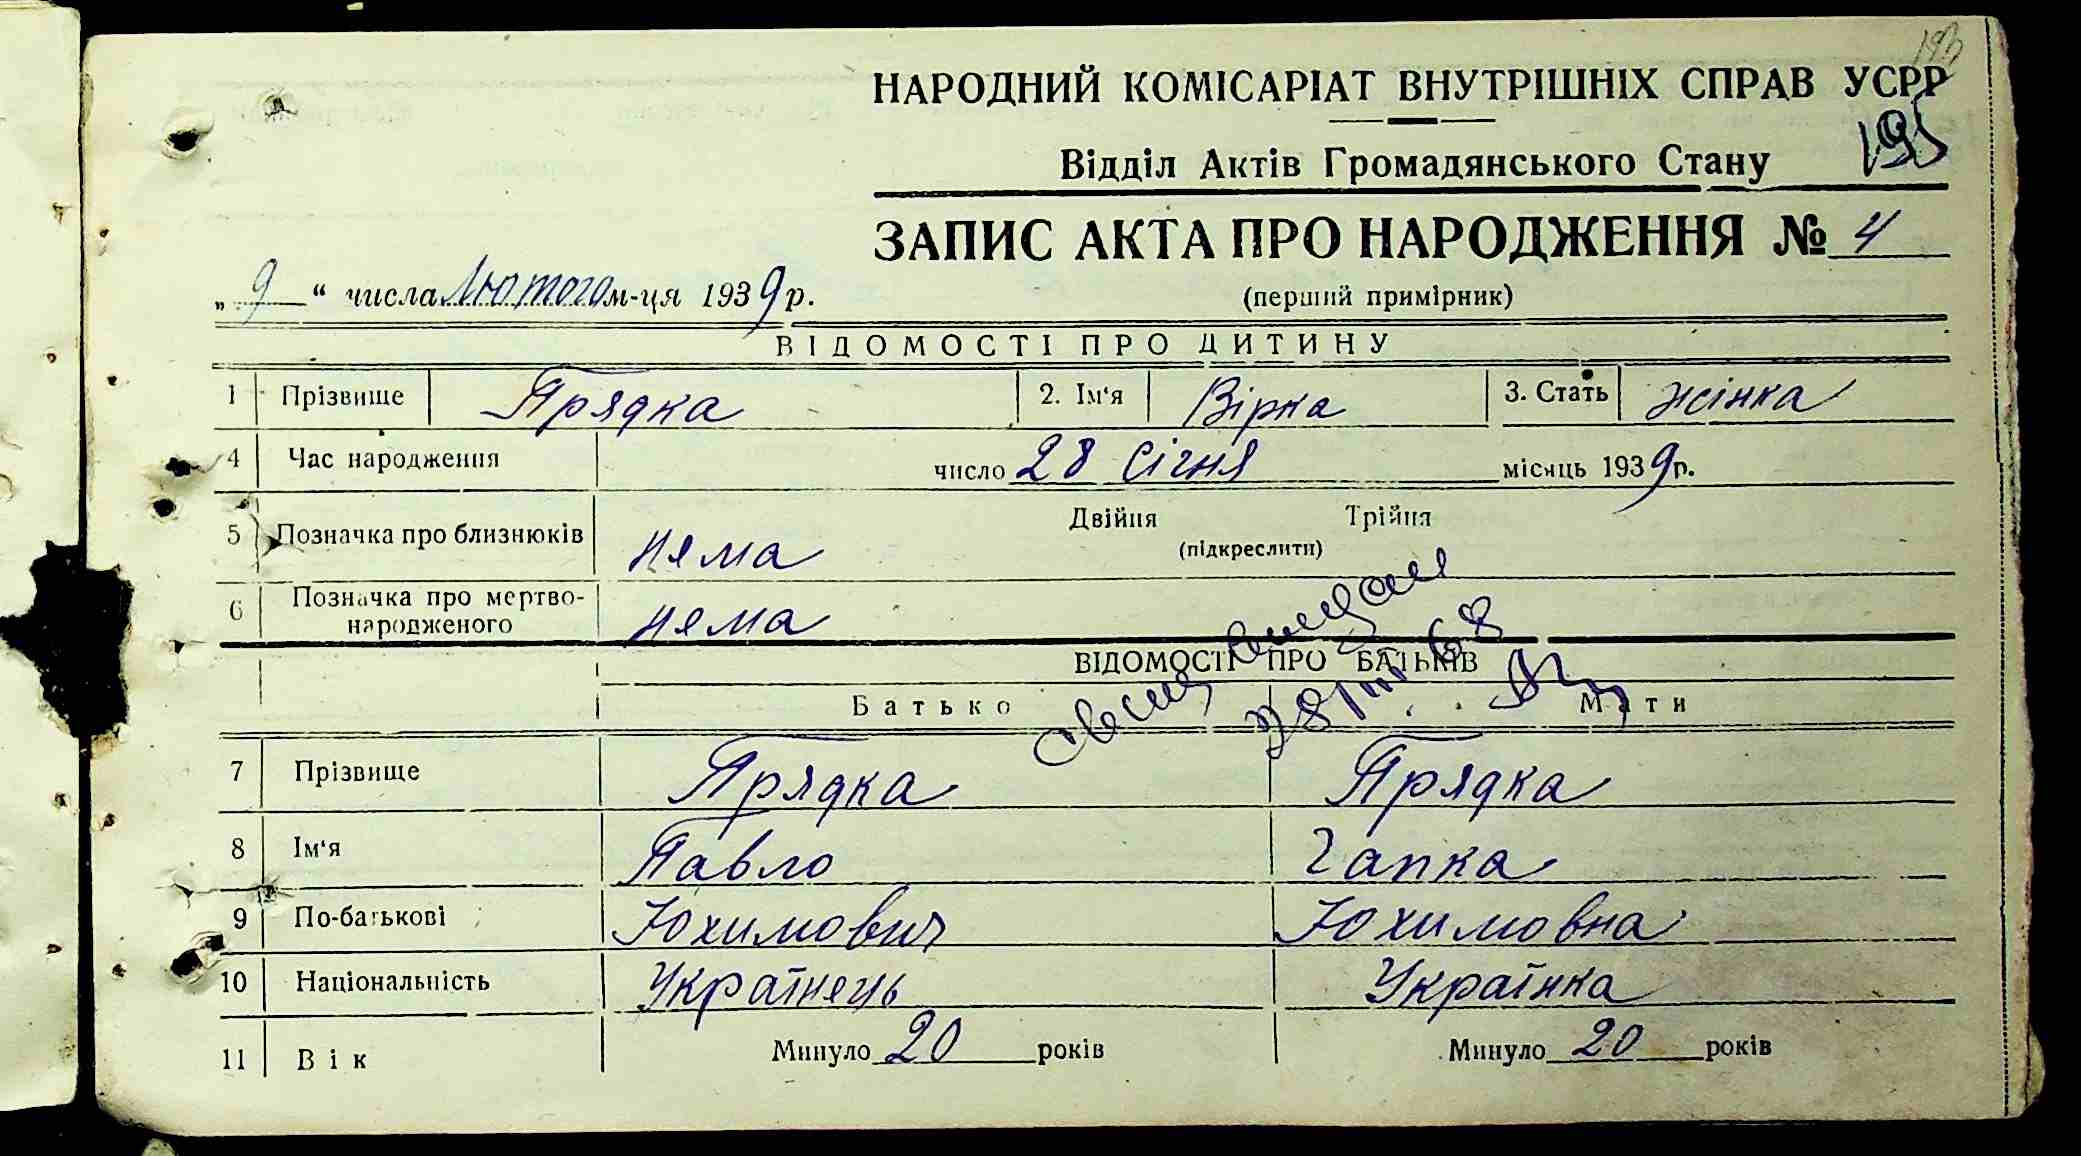 193
НАРОДНИЙ КОМІСАРІАТ ВНУТРІШНІХ СПРАВ УСРР
195
Відділ Актів Громадянського Стану
ЗАПИС АКТА ПРО НАРОДЖЕННЯ № 4
„ 9 “ числа Лютого м-ця 1939 р.
(перший примірник)
ВІДОМОСТІ ПРО ДИТИНУ
1 Прізвище Прядка 2. Ім'я Вірка 3. Стать жінка
4 Час народження число 28 Січня місяць 1939 р.
5 Позначка про близнюків няма Двійня Трійня
(підкреслити)
6 Позначка про мертво-
народженого няма
ВІДОМОСТІ ПРО БАТЬКІВ
Батько Мати
7 Прізвище Прядка Прядка
8 Ім'я Павло Гапка
9 По-батькові Юхимович Юхимовна
10 Національність Українець Українка
11 Вік Минуло 20 років Минуло 20 років